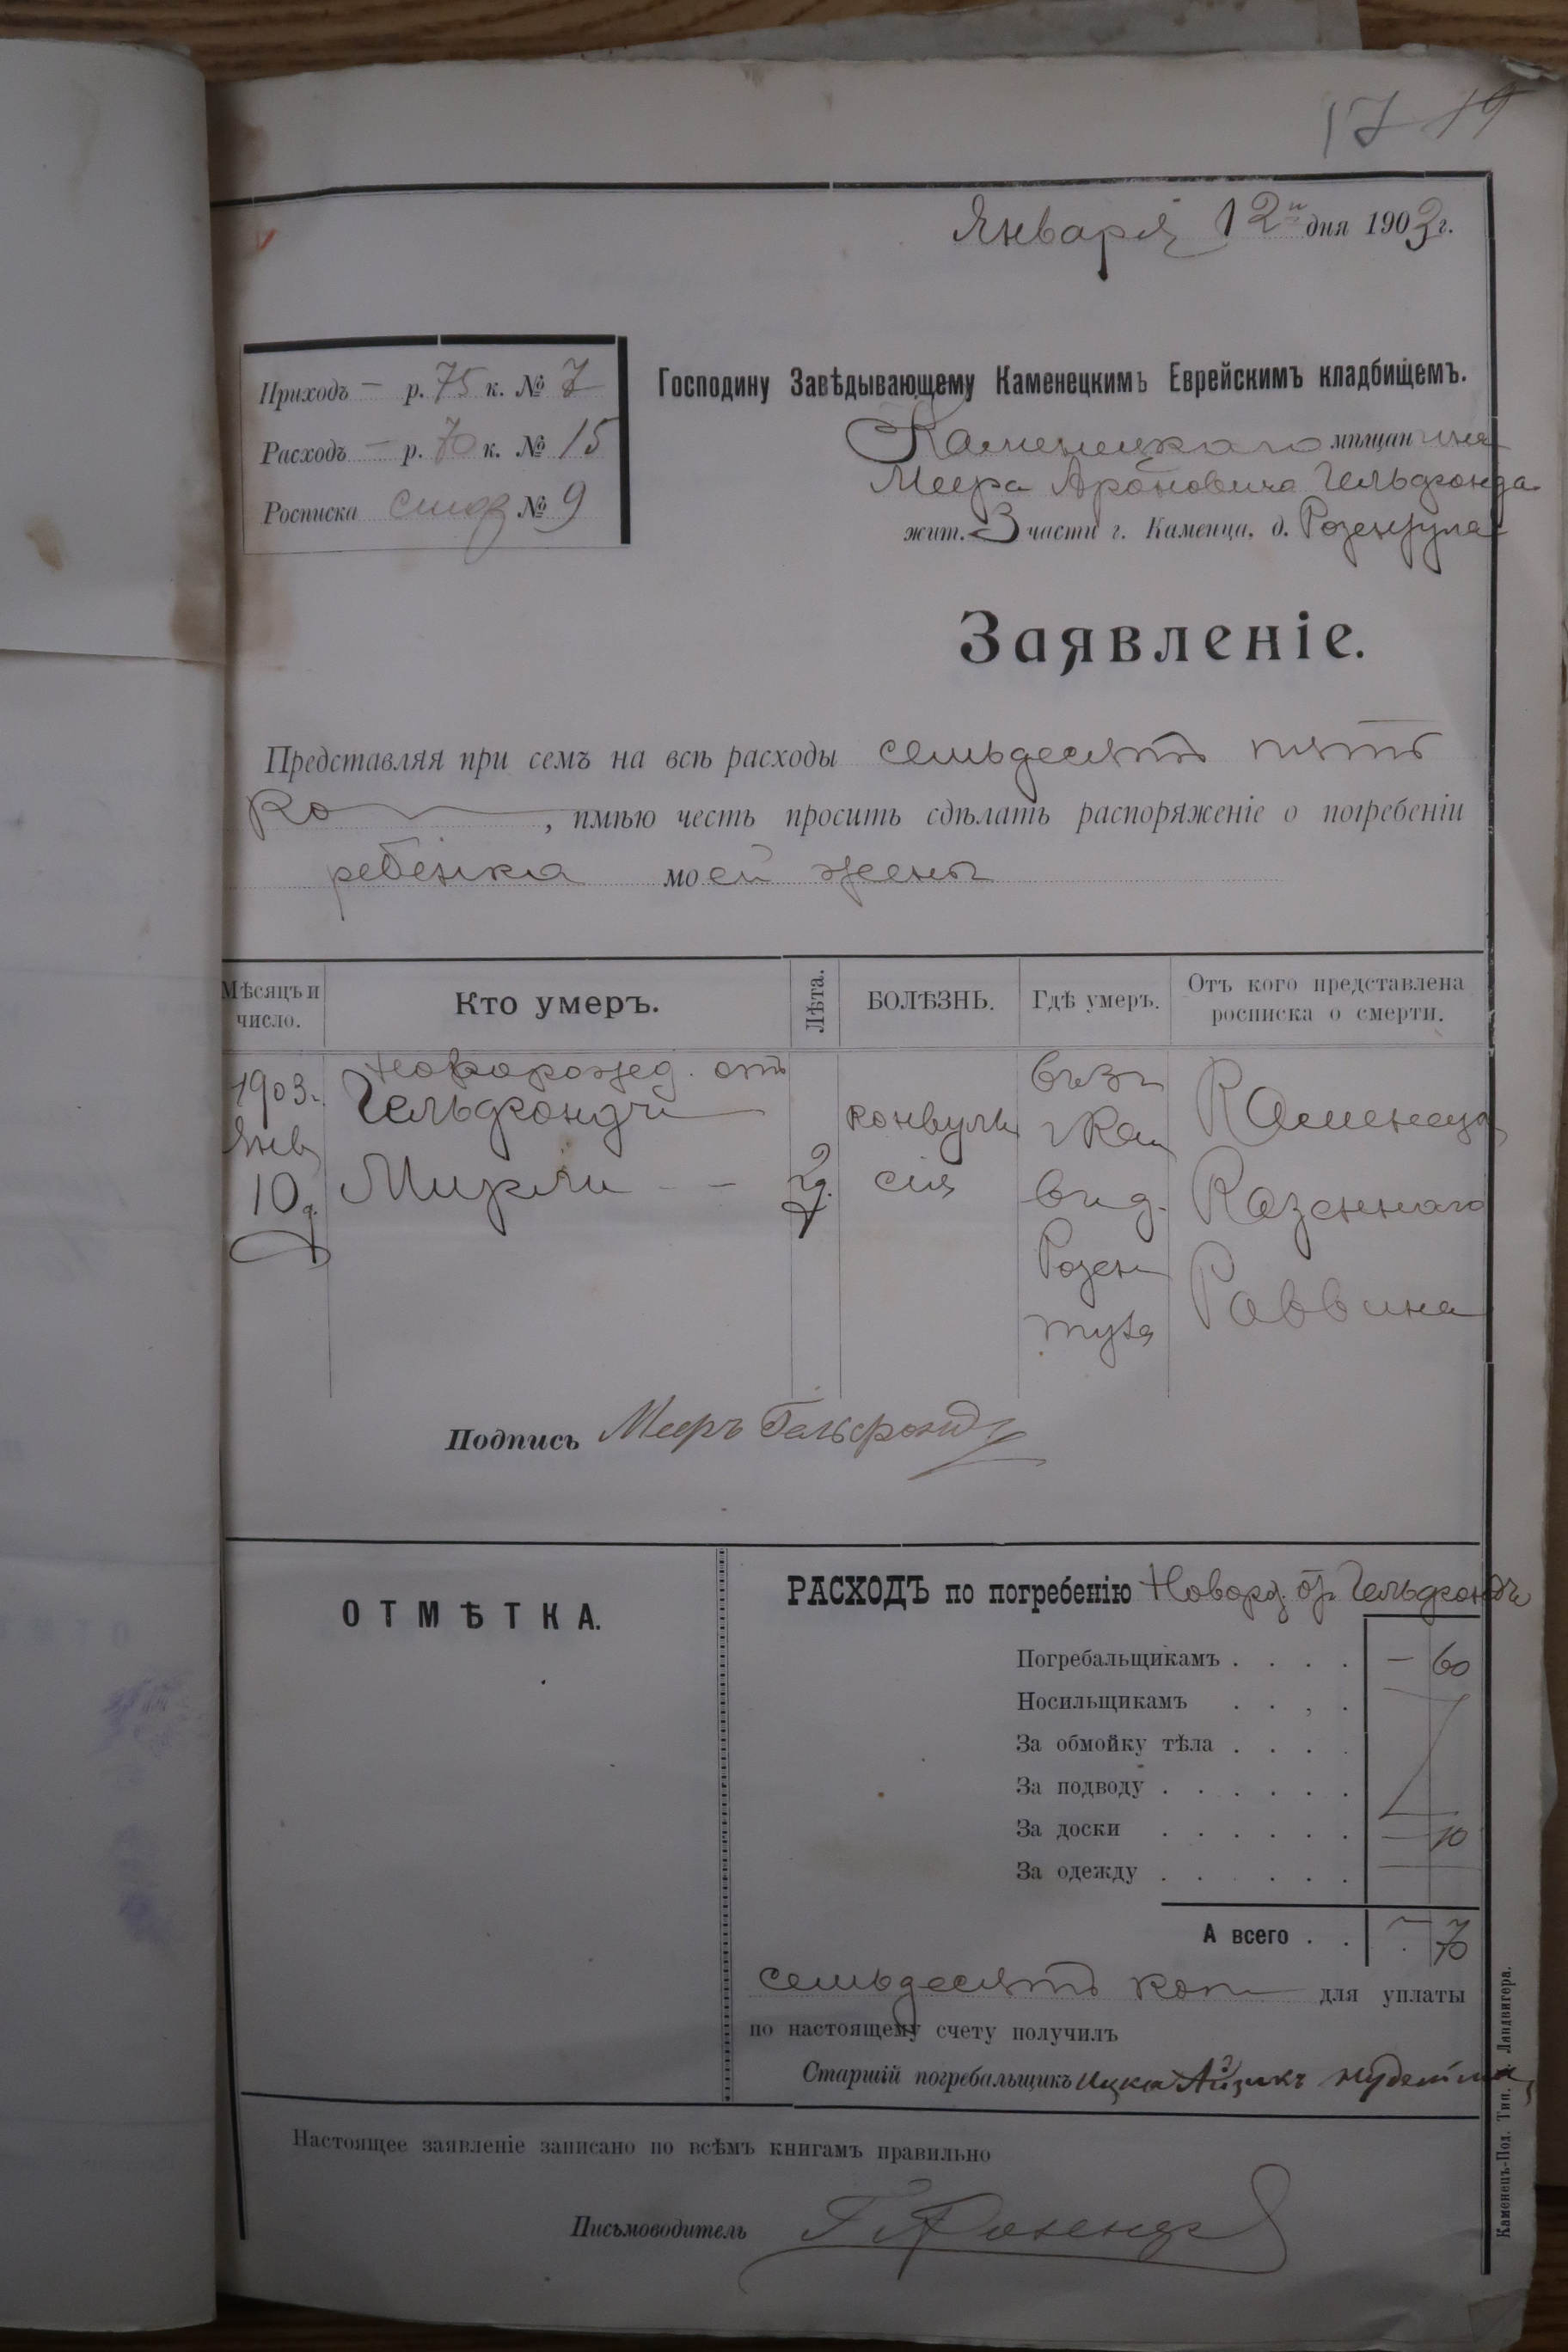 17 19
Января 12 дня 1903 г.
Приходъ — р. 75 к. № 7
Расходъ — р. 70 к. № 15
Росписка № 9
Господину Завѣдывающему Каменецкимъ Еврейскимъ кладбищемъ.
Каменецкаго мѣщанина
Меера Ароновича Гельфонда
жит. 3 части г. Каменца, д.
Заявленіе.
Представляя при семъ на всѣ расходы семьдесятъ пять
ко, имѣю честь просить сдѣлать распоряженіе о погребеніи
ребенка моей жены
Мѣсяцъ и число.
Кто умеръ.
Лѣта.
БОЛѢЗНЬ.
Гдѣ умеръ.
Отъ кого представлена росписка о смерти.
1903.
Янв
10 д.
Новорожд. отъ
Гельфондъ
2 д.
конвуль
сія
г Кам
въ д.
Розен
Каменецк
Казеннаго
Раввина
Подпись Мееръ Гельфондъ
ОТМѢТКА.
РАСХОДЪ по погребенію Новорд. от Гельфондъ
Погребальщикамъ . . . . — 60
Носильщикамъ . . , .
За обмойку тѣла . . . .
За подводу . . . . . .
За доски . . . . . . — 10
За одежду . . . . . .
А всего . . — 70
семьдесятъ коп для уплаты
по настоящему счету получилъ
Старшій погребальщикъ Ицко Айзикъ
Настоящее заявленіе записано по всѣмъ книгамъ правильно
Письмоводитель
Каменецъ-Под. Тип. Ландвигера.